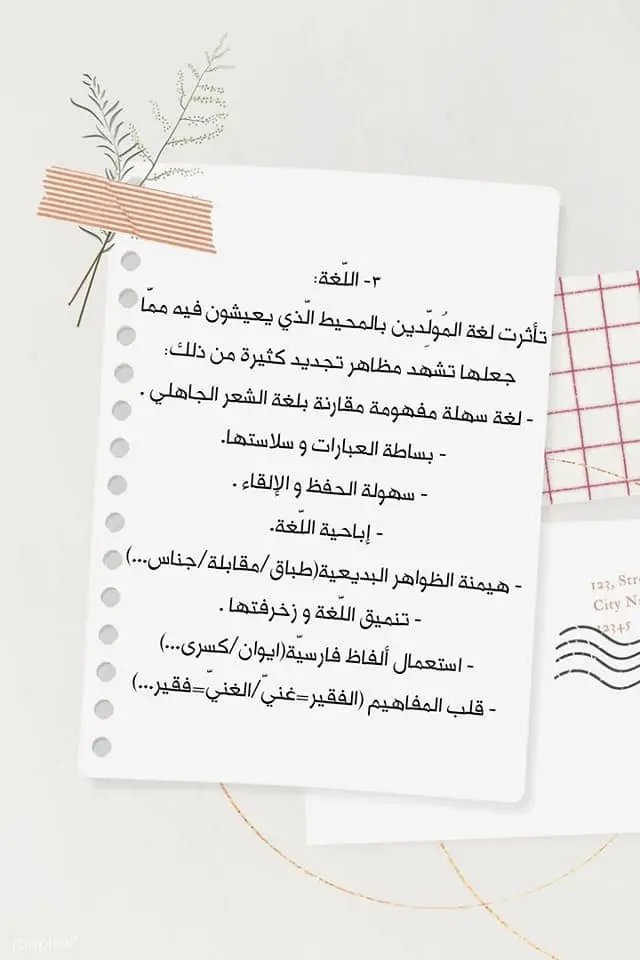 ٣- اللّغة:
تأثرت لغة المُولّدين بالمحيط الّذي يعيشون فيه ممّا
جعلها تشهد مظاهر تجديد كثيرة من ذلك:
- لغة سهلة مفهومة مقارنة بلغة الشعر الجاهلي .
- بساطة العبارات و سلاستها.
- سهولة الحفظ و الإلقاء .
- إباحية اللّغة.
- هيمنة الظواهر البديعية(طباق/مقابلة/جناس...)
- تنميق اللّغة و زخرفتها .
- استعمال ألفاظ فارسيّة(ايوان/كسرى...)
- قلب المفاهيم (الفقير=غنيّ/الغنيّ=فقير...)
123, Stre
City Na
12345
rawpixel